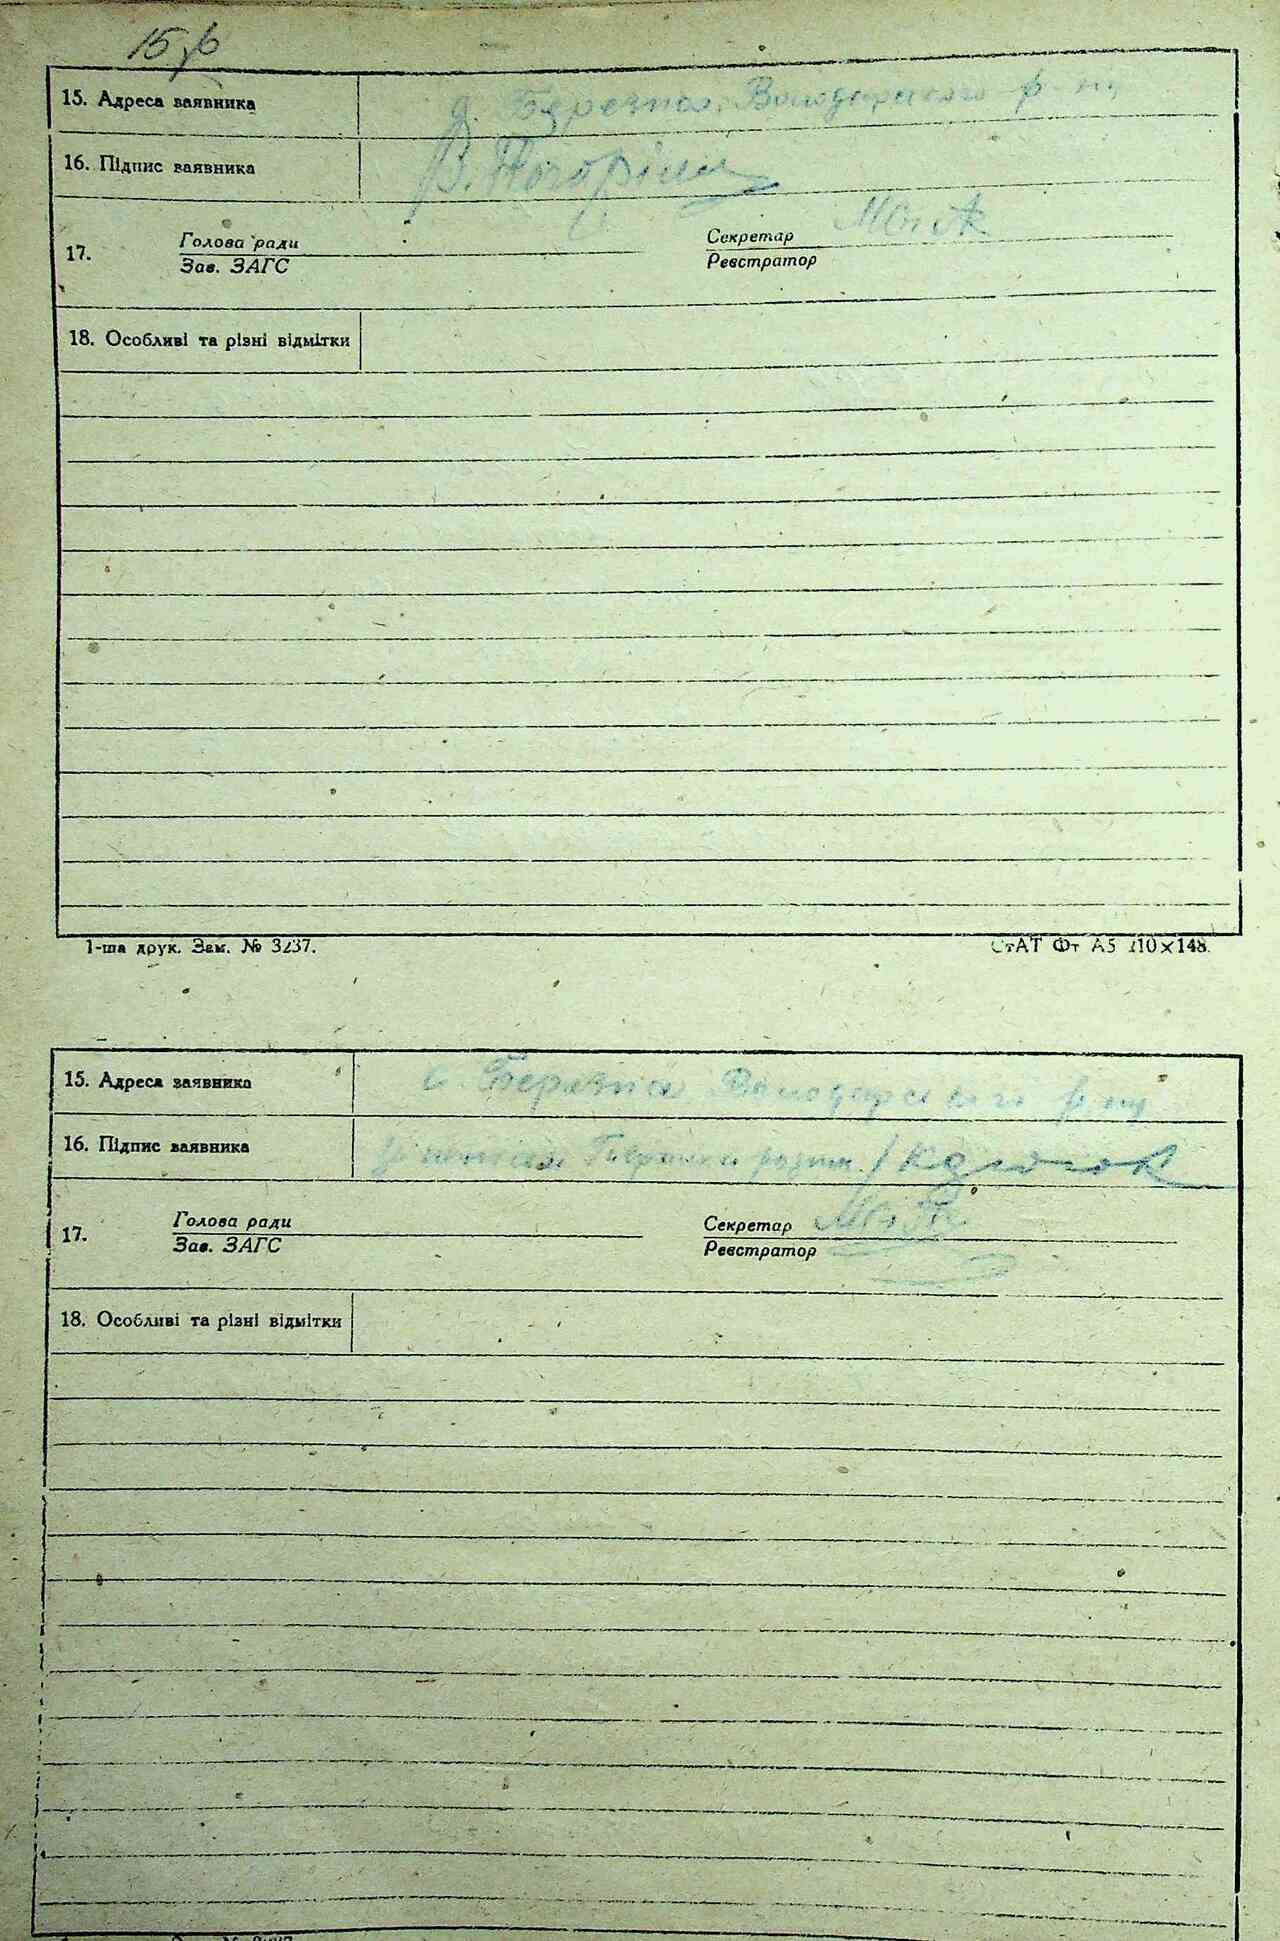 15. Адреса заявника с. Березна Володарського р-ну
16. Підпис заявника В. Погоріли
17. Голова ради Секретар
Зав. ЗАГС Реєстратор
18. Особливі та різні відмітки
1-ша друк. Зам. № 3237. СтАТ Фт А5 210×148.
15. Адреса заявника с. Березна Володарського р-ну
16. Підпис заявника
17. Голова ради Секретар
Зав. ЗАГС Реєстратор
18. Особливі та різні відмітки